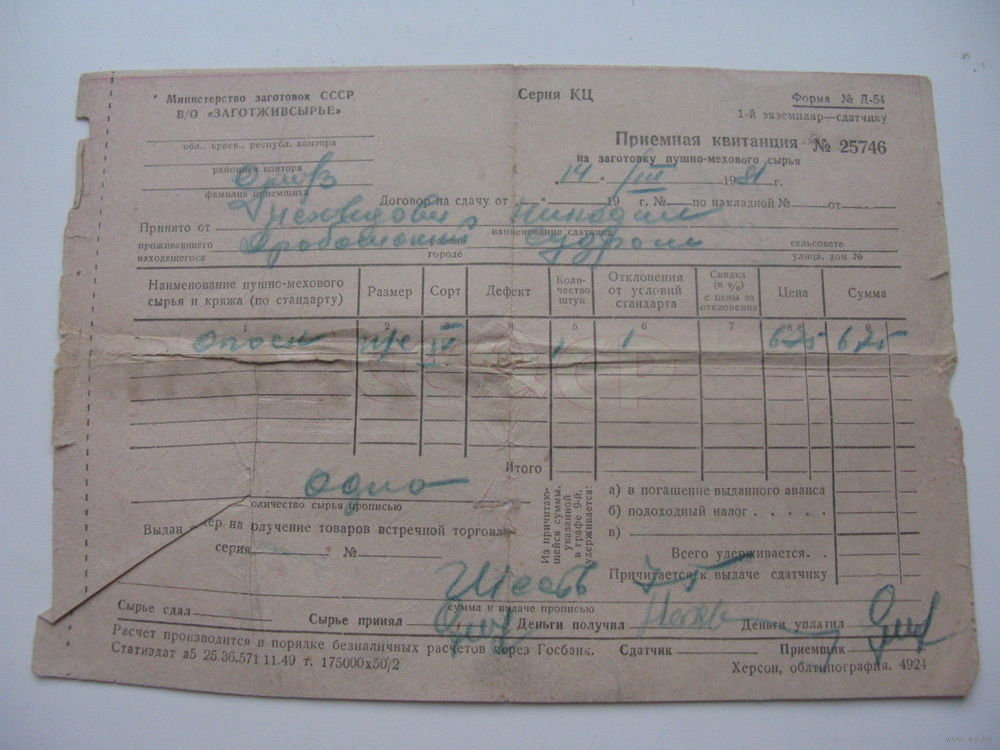 Министерство заготовок СССР
В/О «ЗАГОТЖИВСЫРЬЕ»
Серия КЦ
Форма № Д-54
1-й экземпляр—сдатчику
обл., краев., республ. контора
районная контора
фамилия приемщика
Приемная квитанция № 25746
на заготовку пушно-мехового сырья
14 III 1951 г.
Договор на сдачу от „ “ 19 г. № по накладной № от
Принято от
наименование сдатчика
проживающего
находящегося
районе
городе
сельсовете
улица, дом №
Наименование пушно-мехового сырья и кряжа (по стандарту) Размер Сорт Дефект Количество штук Отклонения от условий стандарта Скидка (в %) с цены за отклонения Цена Сумма
1 2 3 4 5 6 7 8 9
п/с IV 1 1 6 75 6 75
Итого
Одно
количество сырья прописью
Выдан на получение товаров встречной торговли
серия №
Из причитающейся суммы, указанной в графе 9-й, удерживается:
а) в погашение выданного аванса
б) подоходный налог . . . . .
в)
Всего удерживается. .
Причитается к выдаче сдатчику
Шесть 75
сумма к выдаче прописью
Сырье сдал Сырье принял Деньги получил Деньги уплатил
Расчет производится в порядке безналичных расчетов через Госбанк. Сдатчик Приемщик
Статиздат а5 25.36.571 11.49 т. 175000х50/2
Херсон, облтипография. 4924
www.ay.by